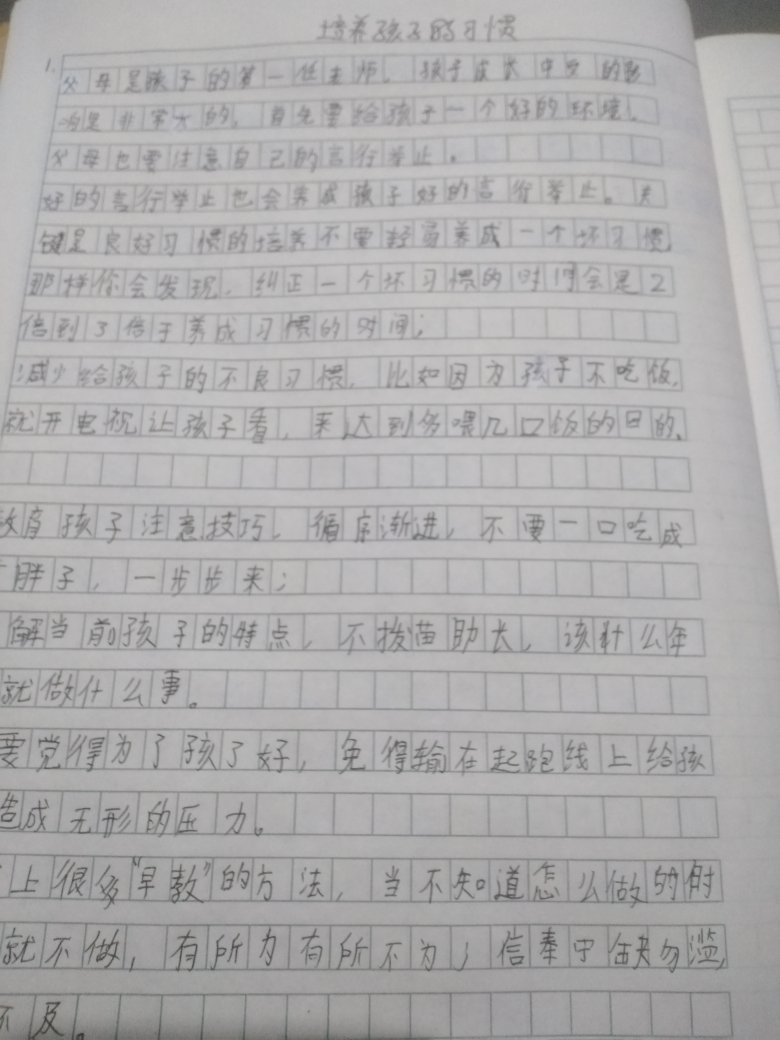 培养孩子的习惯
1. 父母是孩子的第一任老师、孩子成长中受的影
响是非常大的，首先要给孩子一个好的环境，
父母也要注意自己的言行举止。
好的言行举止也会养成孩子好的言行举止。关
键是良好习惯的培养不要轻易养成一个坏习惯，
那样你会发现，纠正一个坏习惯的时间会是2
倍到3倍于养成习惯的时间；
减少给孩子的不良习惯，比如因为孩子不吃饭，
就开电视让孩子看，来达到多喂几口饭的目的、
教育孩子注意技巧、循序渐进，不要一口吃成
胖子，一步步来；
解当前孩子的特点，不拔苗助长，该什么年
就做什么事。
要觉得为了孩了好，免得输在起跑线上给孩
造成无形的压力。
上很多“早教”的方法，当不知道怎么做的时
就不做，有所为有所不为；信奉宁缺勿滥，
不及。